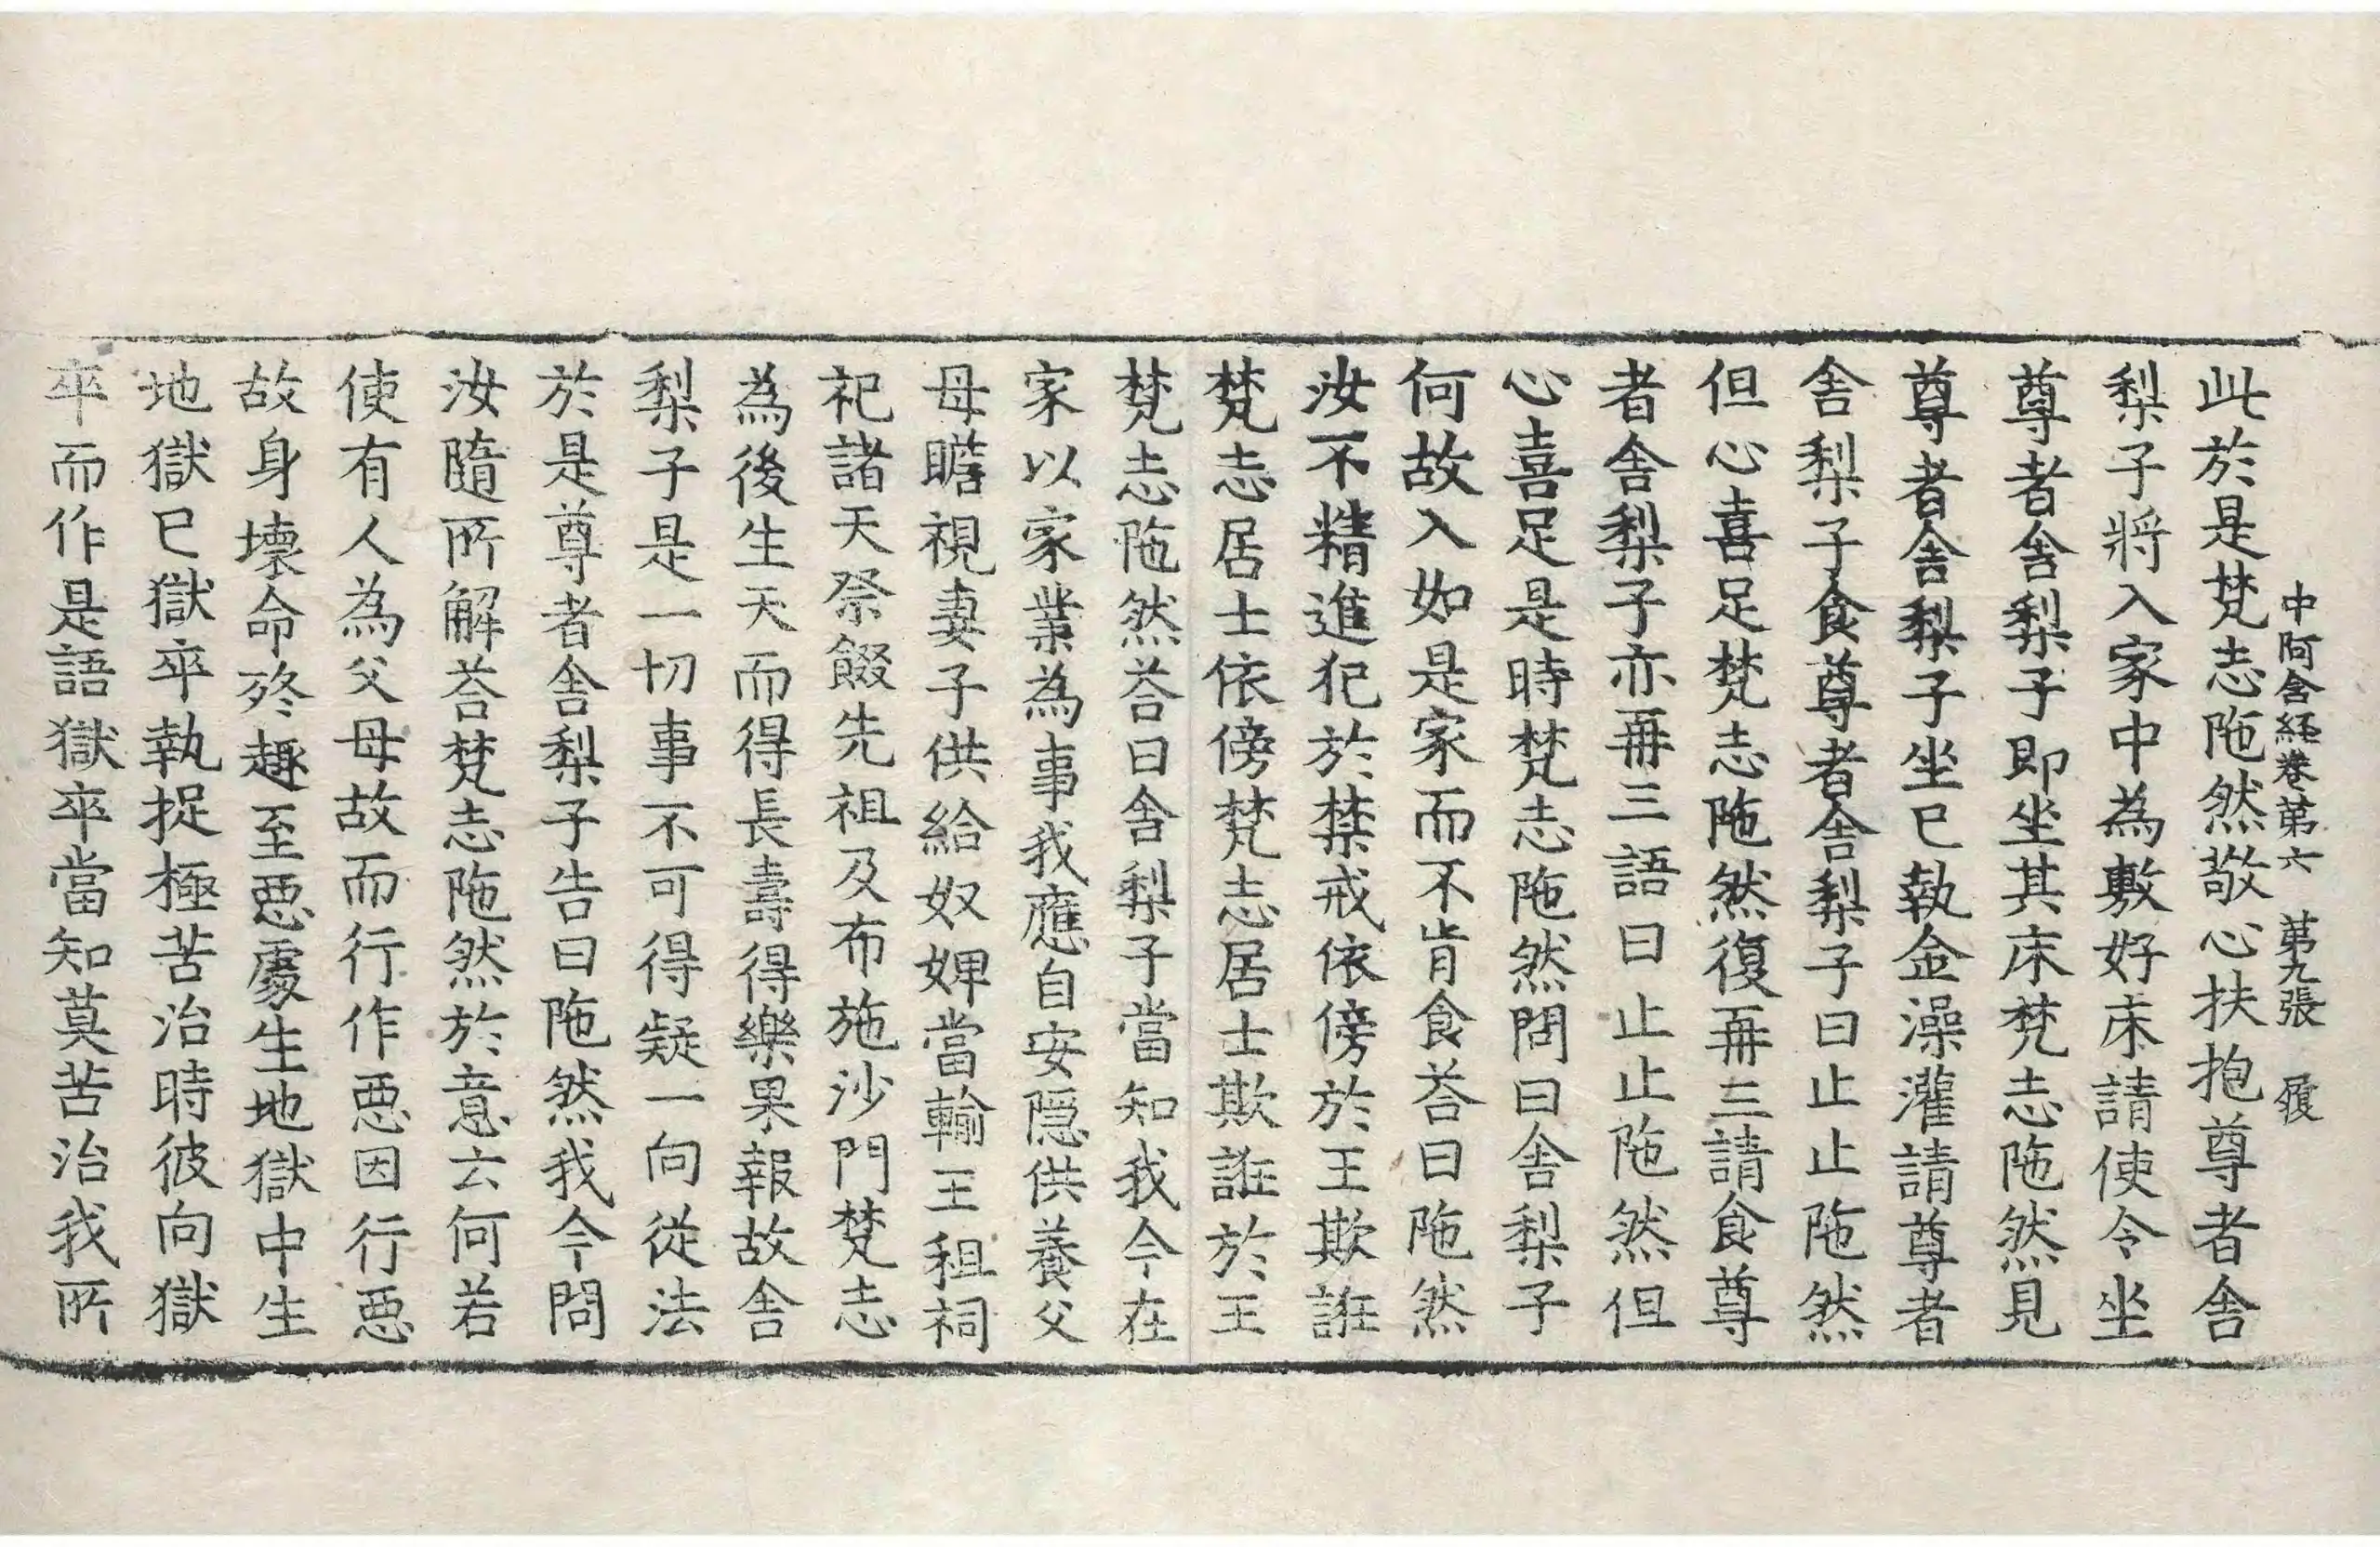 中阿含経卷第六　第九張　履
此於是梵志陁然敬心扶抱尊者舍
梨子將入家中為敷好床請使令坐
尊者舍梨子即坐其床梵志陁然見
尊者舍梨子坐已執金澡灌請尊者
舍梨子食尊者舍梨子曰止止陁然
但心喜足梵志陁然復再三請食尊
者舍梨子亦再三語曰止止陁然但
心喜足是時梵志陁然問曰舍梨子
何故入如是家而不肯食荅曰陁然
汝不精進犯於禁戒依傍於王欺誑
梵志居士依傍梵志居士欺誑於王
梵志陁然荅曰舍梨子當知我今在
家以家業為事我應自安隱供養父
母瞻視妻子供給奴婢當輸王租祠
祀諸天祭餟先祖及布施沙門梵志
為後生天而得長壽得樂果報故舍
梨子是一切事不可得疑一向從法
於是尊者舍梨子告曰陁然我今問
汝隨所解荅梵志陁然於意云何若
使有人為父母故而行作惡因行惡
故身壞命終趣至惡處生地獄中生
地獄已獄卒執捉極苦治時彼向獄
卒而作是語獄卒當知莫苦治我所